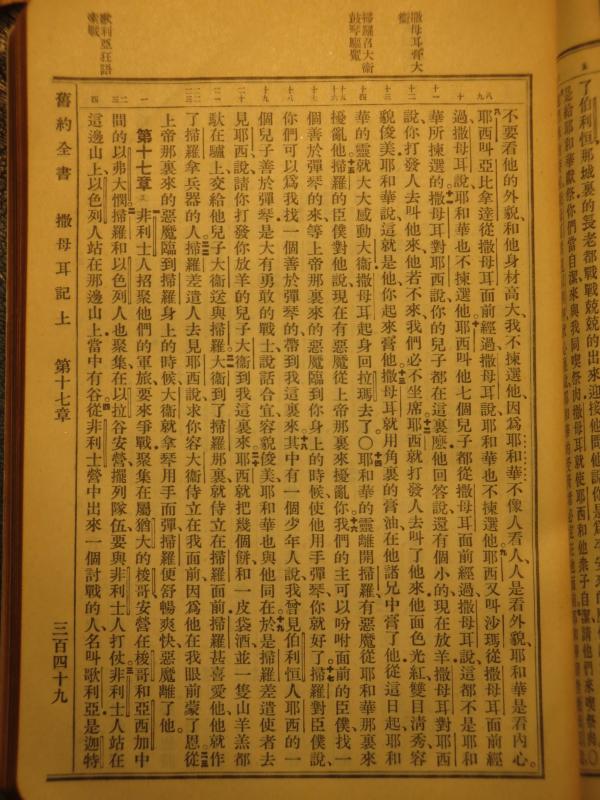 撒母耳膏大
衛
掃羅召大衛
鼓琴驅魔
歌利亞狂語
索戰
不要看他的外貌和他身材高大我不揀選他因爲耶和華不像人看人人是看外貌耶和華是看內心
耶西叫亞比拿達從撒母耳面前經過撒母耳說耶和華也不揀選他耶西又叫沙瑪從撒母耳面前經
過撒母耳說耶和華也不揀選他耶西叫他七個兒子都從撒母耳面前經過撒母耳說這都不是耶和
華所揀選的撒母耳對耶西說你的兒子都在這裏麼他回答說還有個小的現在放羊撒母耳對耶西
說你打發人去叫他來他若不來我們必不坐席耶西就打發人去叫了他來他面色光紅雙目清秀容
貌俊美耶和華說這就是他你起來膏他撒母耳就用角裏的膏油在他諸兄中膏了他從這日起耶和
華的靈就大大感動大衛撒母耳起身回拉瑪去了〇耶和華的靈離開掃羅有惡魔從耶和華那裏來
擾亂他掃羅的臣僕對他說現在有惡魔從上帝那裏來擾亂你我們的主可以吩咐面前的臣僕找一
個善於彈琴的來等上帝那裏來的惡魔臨到你身上的時候使他用手彈琴你就好了掃羅對臣僕說
你們可以爲我找一個善於彈琴的帶到我這裏來其中有一個少年人說我曾見伯利恒人耶西的一
個兒子善於彈琴是大有勇敢的戰士說話合宜容貌俊美耶和華也與他同在於是掃羅差遣使者去
見耶西說請你打發你放羊的兒子大衛到我這裏來耶西就把幾個餅和一皮袋酒並一隻山羊羔都
馱在驢上交給他兒子大衛送與掃羅大衛到了掃羅那裏就侍立在掃羅面前掃羅甚喜愛他他就作
了掃羅拿兵器的人掃羅差遣人去見耶西說求你容大衛侍立在我面前因爲他在我眼前蒙了恩從
上帝那裏來的惡魔臨到掃羅身上的時候大衛就拿琴用手而彈掃羅便舒暢爽快惡魔離了他
第十七章 非利士人招聚他們的軍旅要來爭戰聚集在屬猶大的梭哥安營在梭哥和亞西加中
間的以弗大憫掃羅和以色列人也聚集在以拉谷安營擺列隊伍要與非利士人打仗非利士人站在
這邊山上以色列人站在那邊山上當中有谷從非利士營中出來一個討戰的人名叫歌利亞是迦特
舊約全書 撒母耳記上 第十七章 三百四十九